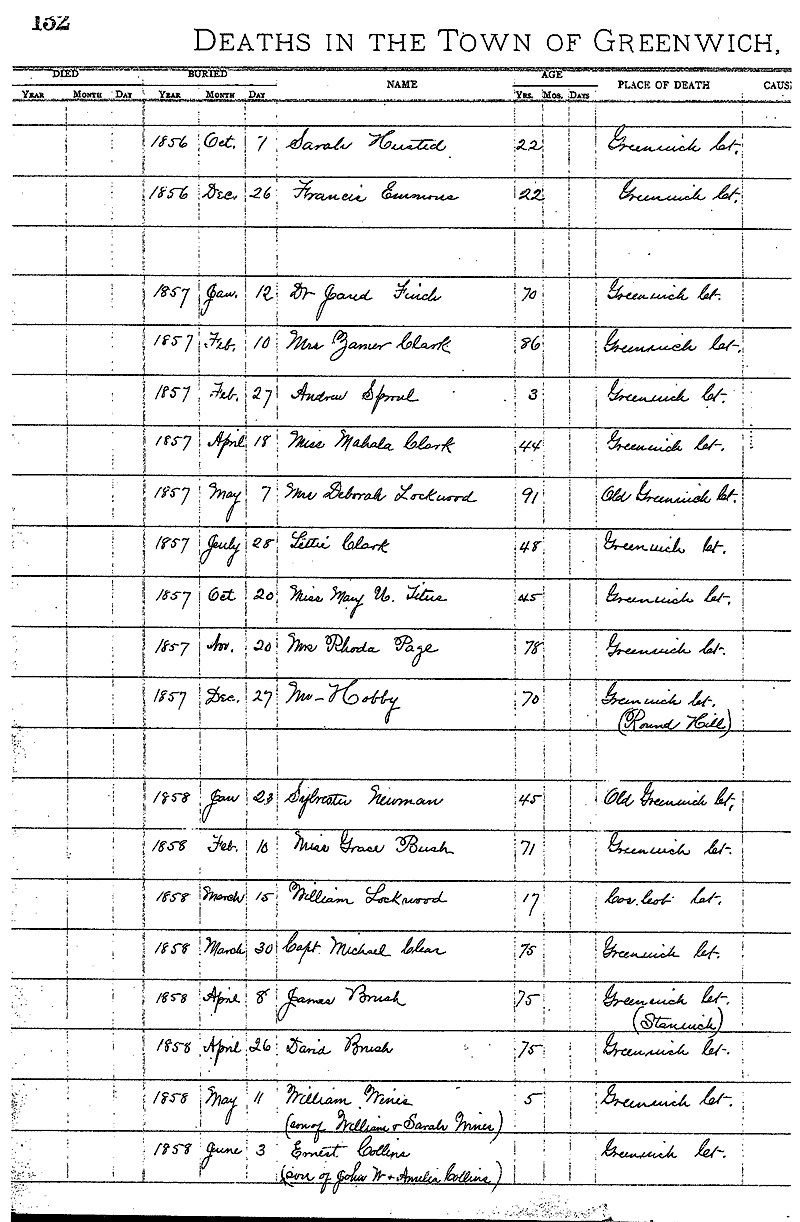 132
DEATHS IN THE TOWN OF GREENWICH,
DIED BURIED NAME AGE PLACE OF DEATH CAUS
YEAR MONTH DAY YEAR MONTH DAY YRS. MOS. DAYS
1856 Oct. 7 Sarah Husted 22 Greenwich Ct.
1856 Dec. 26 Francis Emmons 22 Greenwich Ct.
1857 Jan. 12 Dr Finch 70 Greenwich Ct.
1857 Feb. 10 Mrs Clark 86 Greenwich Ct.
1857 Feb. 27 Andrew Sproul 3 Greenwich Ct.
1857 April 18 Miss Mahala Clark 44 Greenwich Ct.
1857 May 7 Mrs Deborah Lockwood 91 Old Greenwich Ct.
1857 July 28 Lettie Clark 48 Greenwich Ct.
1857 Oct 20 Miss Mary Titus 45 Greenwich Ct.
1857 Nov. 20 Mrs Rhoda Page 78 Greenwich Ct.
1857 Dec. 27 Mr - Hobby 70 Greenwich Ct.
(Round Hill)
1858 Jan 23 Sylvester Newman 45 Old Greenwich Ct.
1858 Feb. 10 Miss Grace Bush 71 Greenwich Ct.
1858 March 15 William Lockwood 17 Cos Cob Ct.
1858 March 30 Capt. Michael 75 Greenwich Ct.
1858 April 8 James Brush 75 Greenwich Ct.
(Stanwich)
1858 April 26 David Brush 75 Greenwich Ct.
1858 May 11 William Wines 5 Greenwich Ct.
(son of William + Sarah Wines)
1858 June 3 Ernest Collins Greenwich Ct.
(son of John W + Amelia Collins)